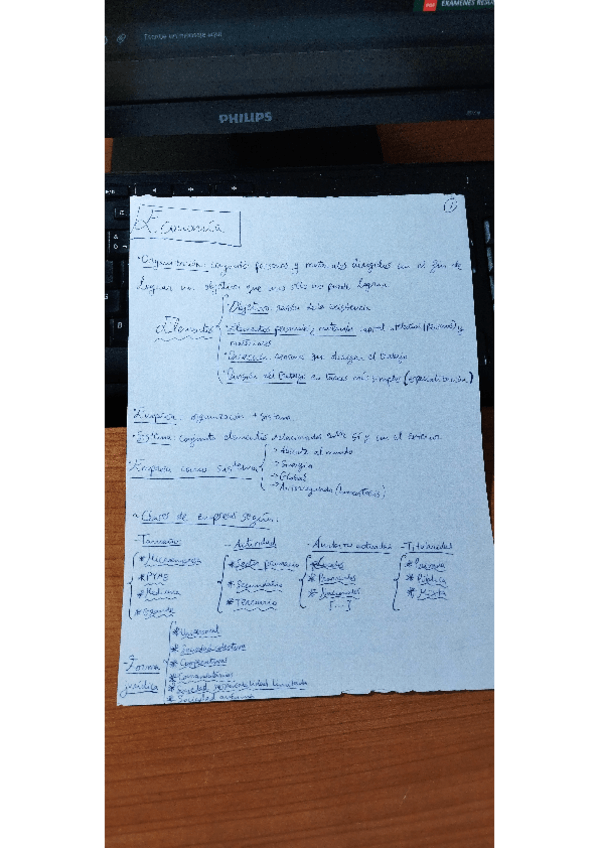 PDF EXÁMENES RESU
Escribe un mensaje aquí
PHILIPS
1
Economía
· Organización: conjunto personas y materiales dirigidos con el fin de
lograr un objetivo que uno sólo no puede lograr
Elementos
· Objetivo: razón de la existencia
· Elementos personales y materiales: (personal) y
materiales
· Dirección: personas que dirigen el trabajo
· División del trabajo: en tareas más simples (especialización)
· Empresa: organización + sistema
· Sistema: conjunto elementos relacionados entre sí y con el exterior
· Empresa como sistema
→ Abierto al mundo
→ Sinergia
→ Global
→ Autorregulada (homeostasis)
Clases de empresa según:
- Tamaño
* Microempresa
* PYME
* Mediana
* Grande
- Actividad
* Sector primario
* Secundario
* Terciario
- Ámbito actuación
* Locales
* Provinciales
* Nacionales
[...]
- Titularidad
* Privada
* Pública
* Mixta
- Forma
jurídica
* Unipersonal
* Sociedad colectiva
* Cooperativas
* Comanditarias
* Sociedad responsabilidad limitada
* Sociedad anónima